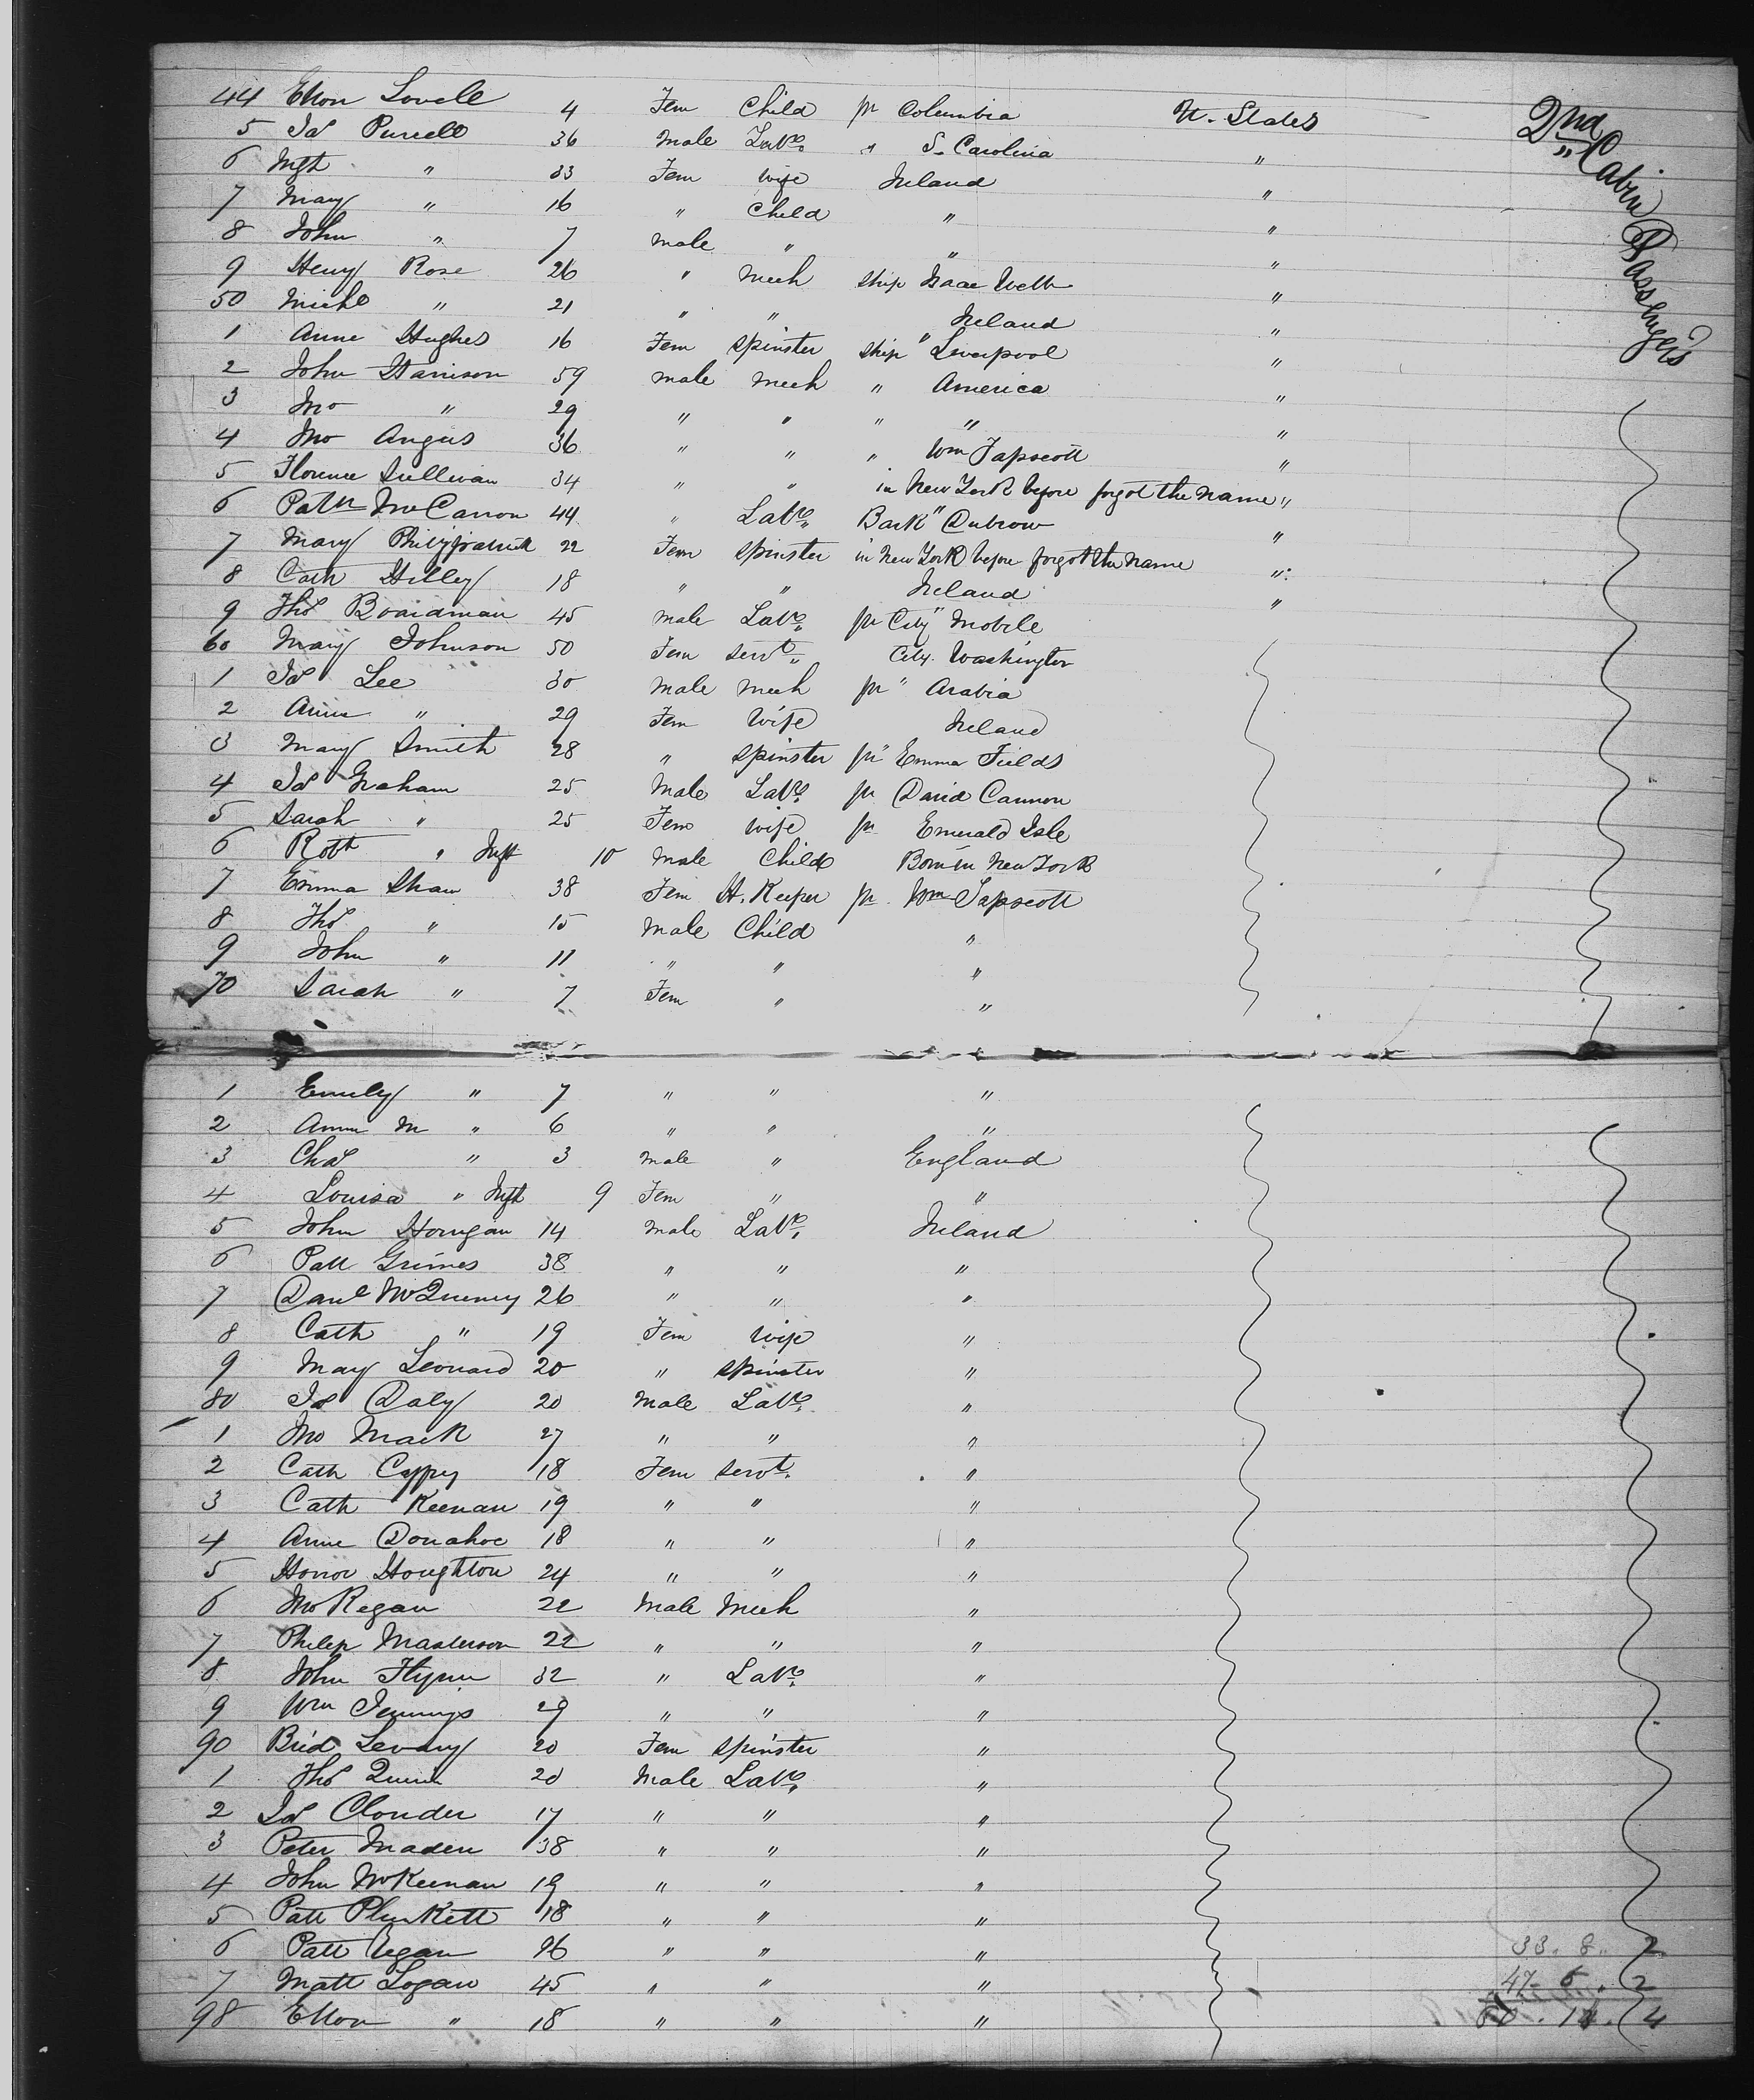 2nd Cabin Passengers
44 Ellen Lovele 4 Fem Child pr Columbia U. States
5 Jas Purcell 36 Male Labr " S. Carolina "
6 Mgt " 33 Fem wife Ireland "
7 Mary " 16 " Child " "
8 John " 7 male " " "
9 Henry Rose 26 " Mech ship Isaac Webb "
50 Michl " 21 " " Ireland "
1 Anne Hughes 16 Fem Spinster ship " Liverpool "
2 John Harrison 59 male Mech " America "
3 Jno " 29 " " " " "
4 Jno Angus 36 " " " Wm Tapscott "
5 Florence Sullivan 34 " " in New York before forgot the name "
6 Patk McCarron 44 " Labr Bark " "
7 Mary 22 Fem Spinster in New York before forgot the name "
8 Cath Hilley 18 " " Ireland "
9 Thos Boardman 45 male Labr pr City " Mobile
60 Mary Johnson 50 Fem Servt City Washington
1 Jas Lee 30 Male Mech pr " Arabia
2 Anne " 29 Fem Wife Ireland
3 Mary Smith 28 " Spinster pr " Emma Fields
4 Jas Graham 25 Male Labr pr David Cannon
5 Sarah " 25 Fem wife pr Emerald Isle
6 Robt " Inft 10 Male Child Born in New York
7 Emma Shaw 38 Fem H. Keeper pr Wm Tapscott
8 Thos " 15 Male Child "
9 John " 11 " " "
70 Sarah " 7 Fem " "
1 Emily " 7 " " "
2 Anne M " 6 " " "
3 Chas " 3 Male " England
4 Louisa " Inft 9 Fem " "
5 John Horrigan 14 Male Labr Ireland
6 Patt Grimes 38 " " "
7 Danl McQueeney 26 " " "
8 Cath " 19 Fem Wife "
9 Mary Leonard 20 " Spinster "
80 Jas Daly 20 Male Labr "
1 Jno Mack 27 " " "
2 Cath 18 Fem Servt "
3 Cath Keenan 19 " " "
4 Anne Donahoe 18 " " "
5 Honor Houghton 24 " " "
6 Jno Regan 22 Male Mech "
7 Philip Masterson 22 " " "
8 John Flynn 32 " Labr "
9 Wm Jennings 29 " " "
90 Brid 20 Fem Spinster "
1 Thos Quinn 20 Male Labr "
2 Jas Clouder 17 " " "
3 Peter Maden 38 " " "
4 John McKeenan 19 " " "
5 Patt Plunkett 18 " " "
6 Patt Egan 26 " " " 33. 8. 2
7 Matt Logan 45 " " " 47. 6. 2
98 Ellen " 18 " " "